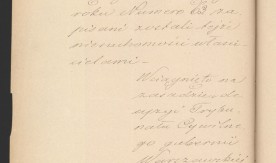 roku Numero 63 za
pisani zostali tejże
nieruchomości właści
cielami.-
Wciągnięto na
zasadzie de
cyzyi Trybu
nału Cywilne
go gubernii
Warszawskiej